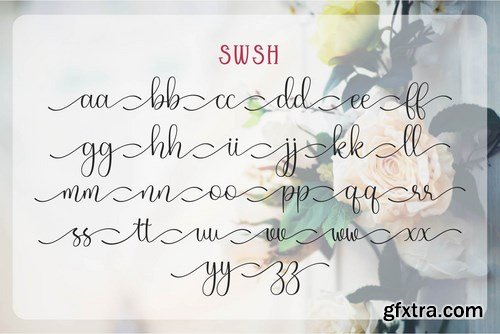 SWSH
aa bb cc dd ee ff
gg hh ii jj kk ll
mm nn oo pp qq rr
ss tt uu vv ww xx
yy zz
gfxtra.com